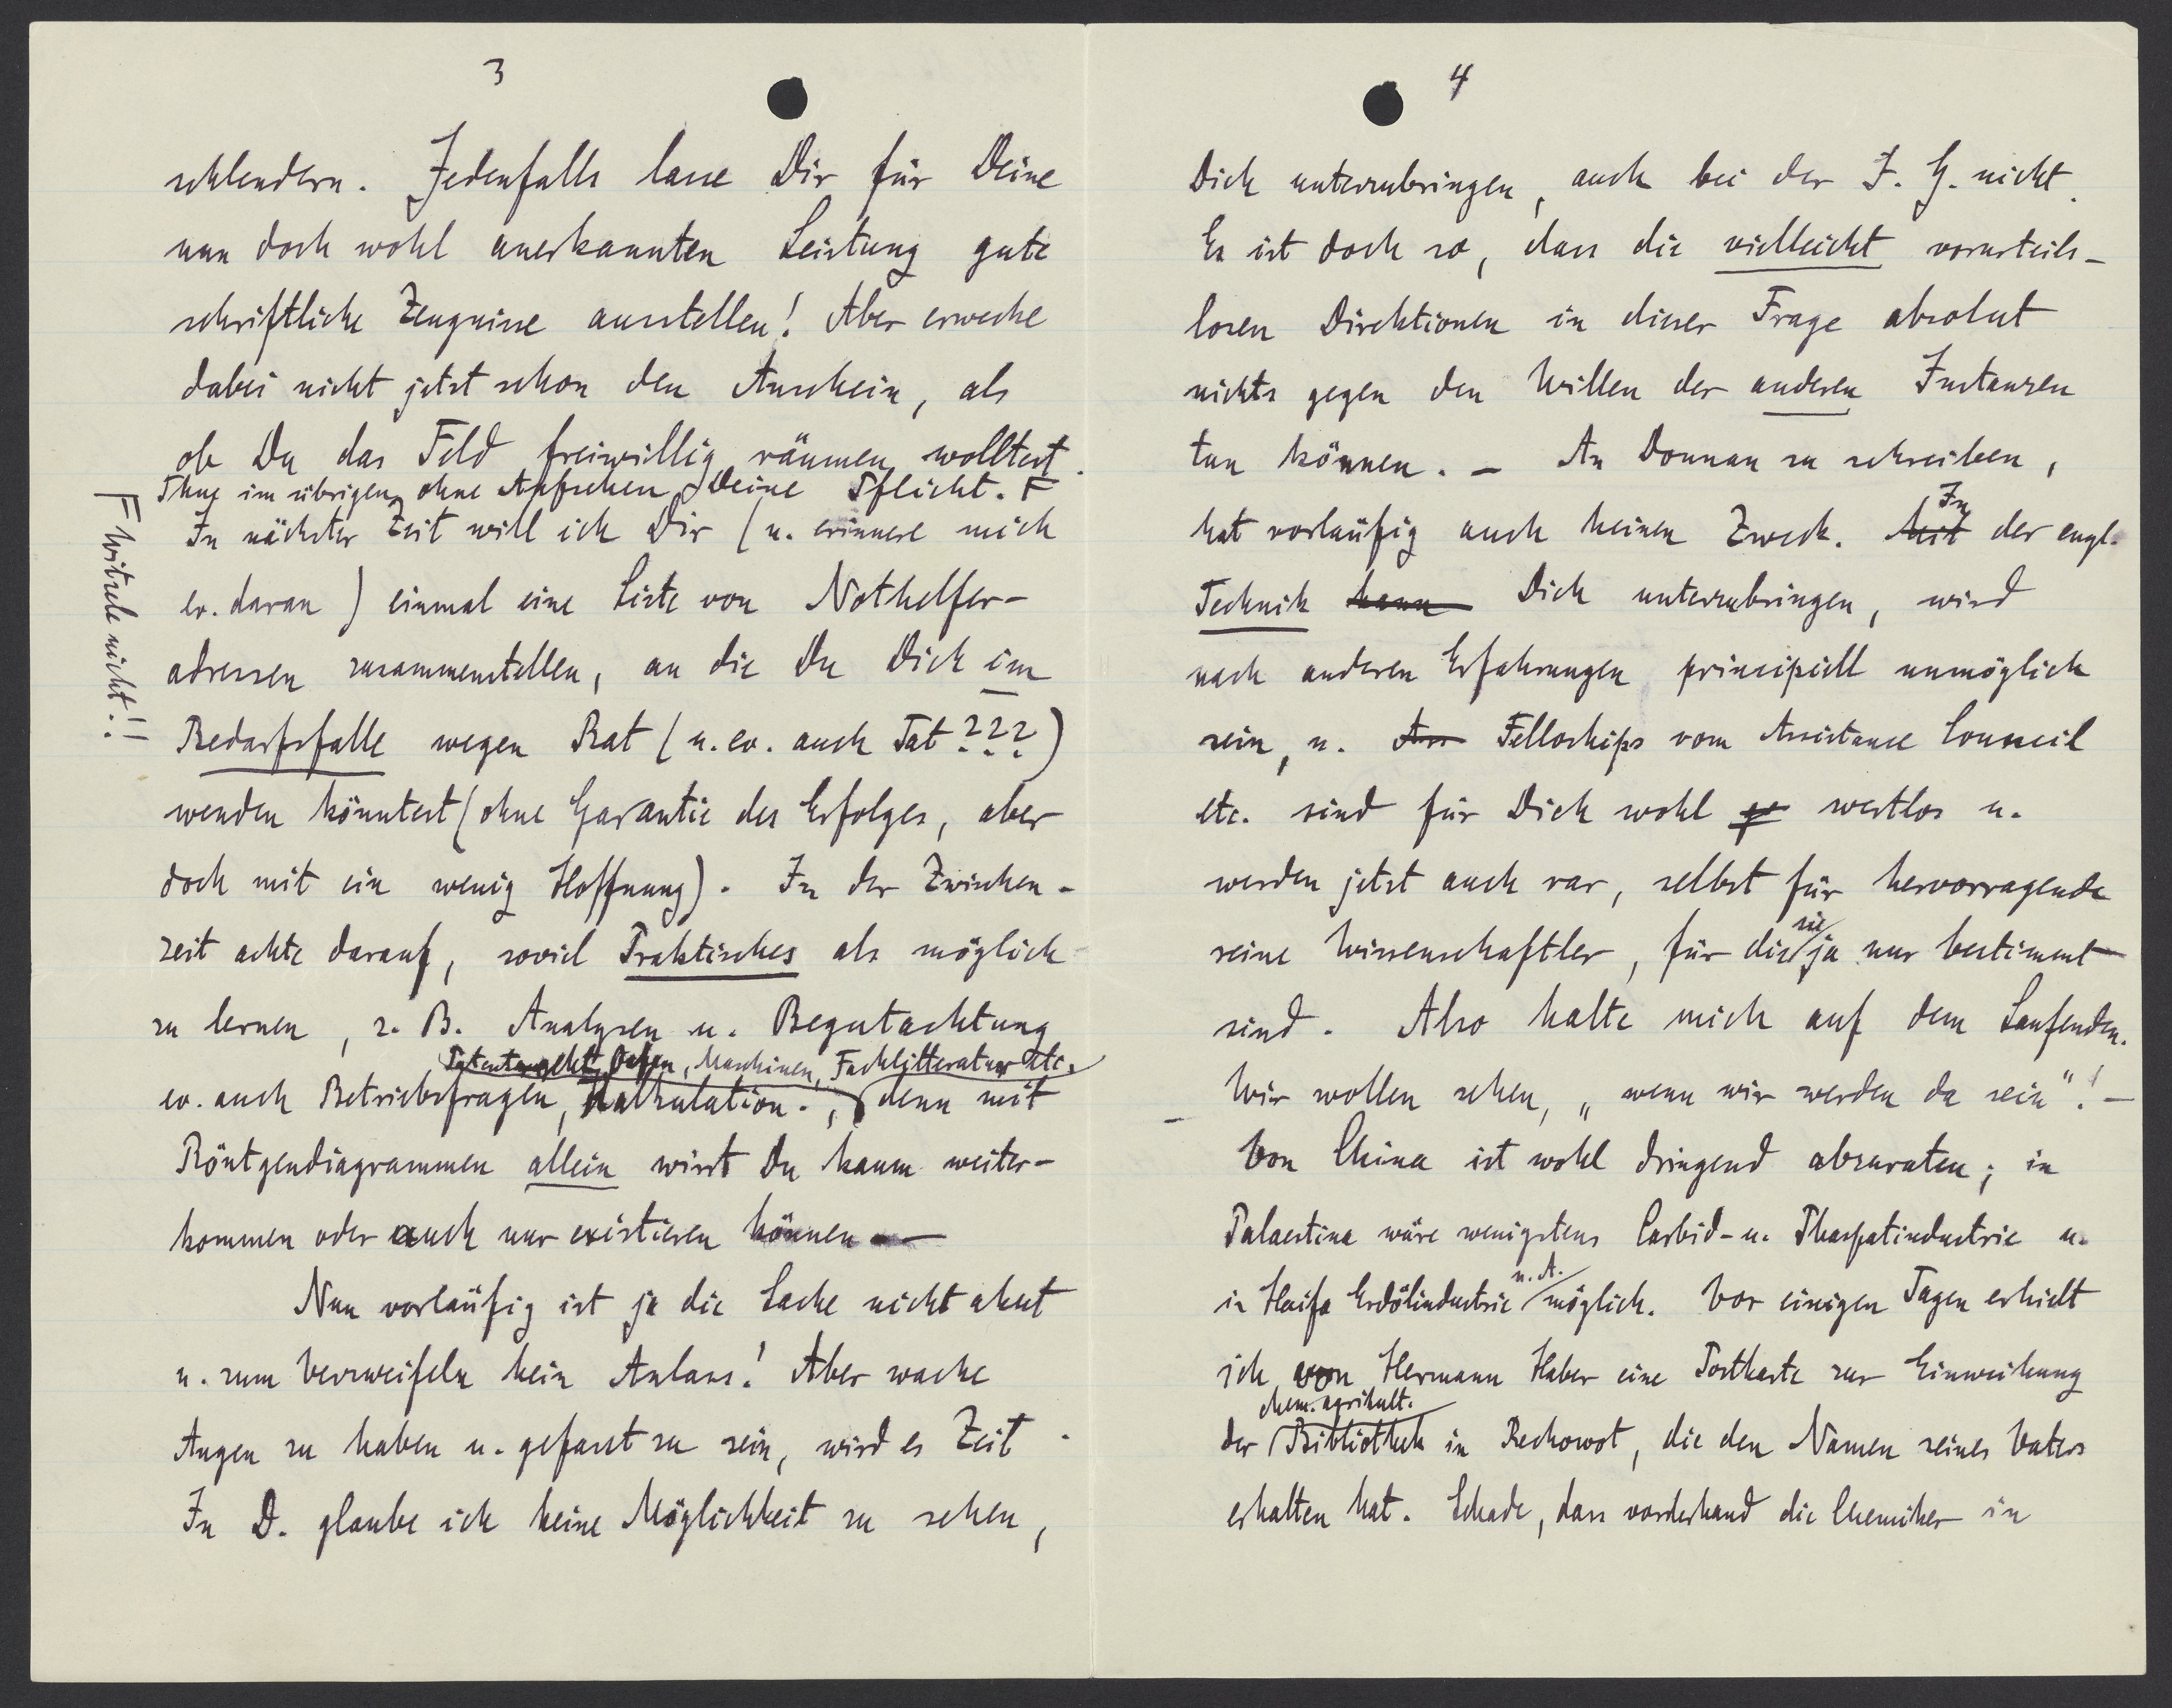 3
schlendern. Jedenfalls lasse Dir für Deine
nun doch wohl anerkannten Leistung gute
schriftliche Zeugnisse ausstellen! Aber erwecke
dabei nicht jetzt schon den Anschein, als
ob Du das Feld freiwillig räumen wolltest.
Thue im übrigen ohne Aufsehen Deine Pflicht. F
F Witzele nicht!!
In nächster Zeit will ich Dir (u. erinnere mich
ev. daran) einmal eine Liste von Nothelfer-
adressen zusammenstellen, an die Du Dich im
Bedarfsfalle wegen Rat (u. ev. auch Tat???)
wenden könntest (ohne Garantie des Erfolges, aber
doch mit ein wenig Hoffnung). In der Zwischen-
zeit achte darauf, soviel Praktisches als möglich
zu lernen, z. B. Analysen u. Begutachtung
Patentrecht, Ofen, Maschinen, Fachlitteratur etc.
ev. auch Betriebsfragen, Kalkulation., denn mit
Röntgendiagrammen allein wirst Du kaum weiter-
kommen oder auch nur existieren können. —
Nun vorläufig ist ja die Sache nicht akut
u. zum Verzweifeln kein Anlass! Aber wache
Augen zu haben u. gefasst zu sein, wird es Zeit.
In D. glaube ich keine Möglichkeit zu sehen,
4
Dich unterzubringen, auch bei der I. G. nicht.
Es ist doch so, dass die vielleicht vorurteils-
losen Direktionen in dieser Frage absolut
nichts gegen den Willen der anderen Instanzen
tun können. – An Donnan zu schreiben,
hat vorläufig auch keinen Zweck. Mit In der engl.
Technik kann Dich unterzubringen, wird
nach anderen Erfahrungen principiell unmöglich
sein, u. Ass Felloships vom Assistance Council
etc. sind für Dich wohl wertlos u.
werden jetzt auch rar, selbst für hervorragende
reine Wissenschaftler, für die sie ja nur bestimmt
sind. Also halte mich auf dem Laufenden.
Wir wollen sehen, „wenn wir werden da sein"! –
Von China ist wohl dringend abzuraten; in
Palaestina wäre wenigstens Carbid- u. Phospatindustrie u.
in Haifa Erdölindustrie u. A. möglich. Vor einigen Tagen erhielt
ich von Hermann Haber eine Postkarte zur Einweihung
der chem. agrikult. Bibliothek in Rechowot, die den Namen seines Vaters
erhalten hat. Schade, dass vorderhand die Chemiker in